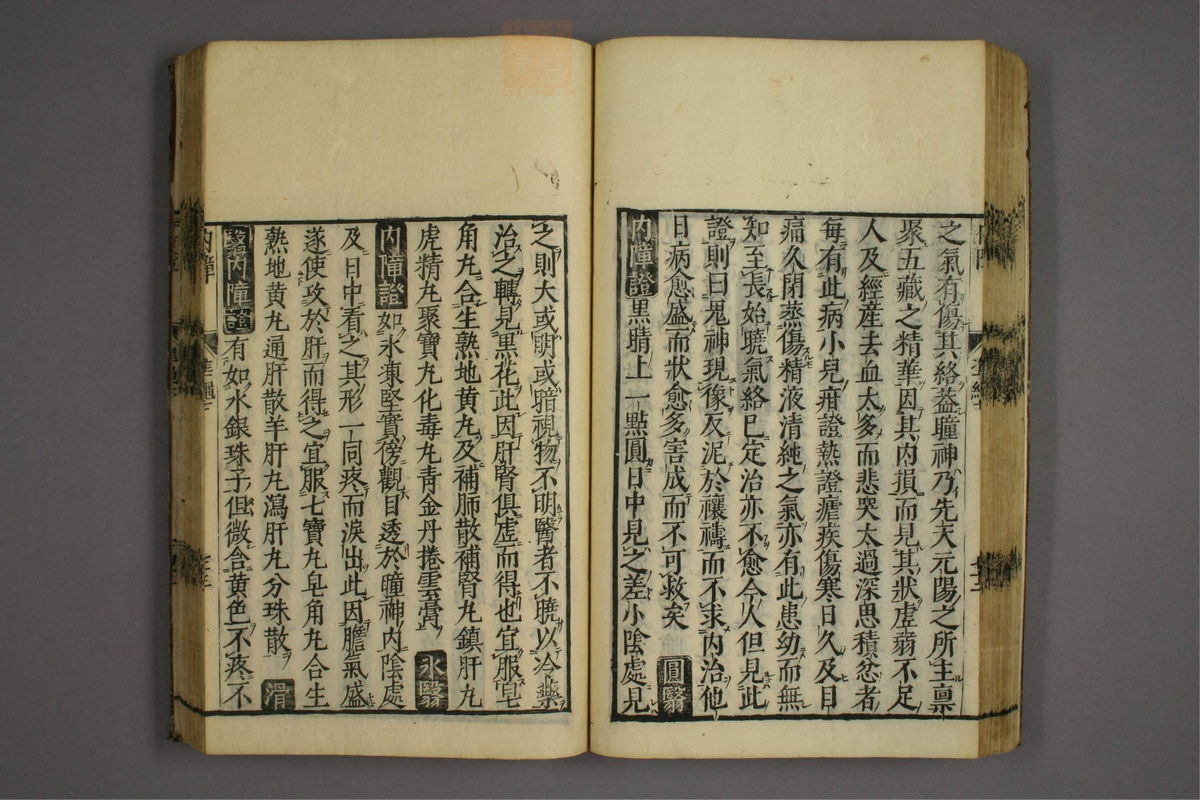 之氣有傷其絡蓋瞳神乃先天元陽之所主稟
聚五藏之精華因其内損而見其狀虛弱不足
人及經産去血太多而悲哭太過深思積忿者
每有此病小兒疳證熱證瘧疾傷寒日久及目
痛久閉蒸傷精液清純之氣亦有此患幼而無
知至長始曉氣絡已定治亦不愈今人但見此
證則曰鬼神現像反泥於禳禱而不求内治他
日病愈盛而狀愈多害成而不可救矣 圓翳
内障證 黒睛上一點圓日中見之差小陰處見
之則大或明或暗視物不明醫者不曉以冷藥
治之轉見黒花此因肝腎俱虛而得也宜服皂
角丸合生熟地黄丸及補肺散補腎丸鎮肝丸
虎精丸聚寶丸化毒丸青金丹捲雲膏 氷翳
内障證 如氷凍堅實傍觀目透於瞳神内陰處
及日中看之其形一同疼而淚出此因膽氣盛
遂使攻於肝而得之宜服七寶丸皂角丸合生
熟地黄丸通肝散羊肝丸瀉肝丸分珠散 滑
翳内障證 有如水銀珠子但微含黄色不疼不